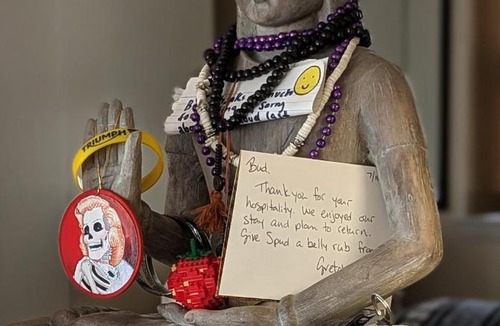 TRIUMPH
much
Sorry
loud last
Bud,
7/
Thank you for your
hospitality. We enjoyed our
stay and plan to return.
Give Spud a belly rub from
Gretch